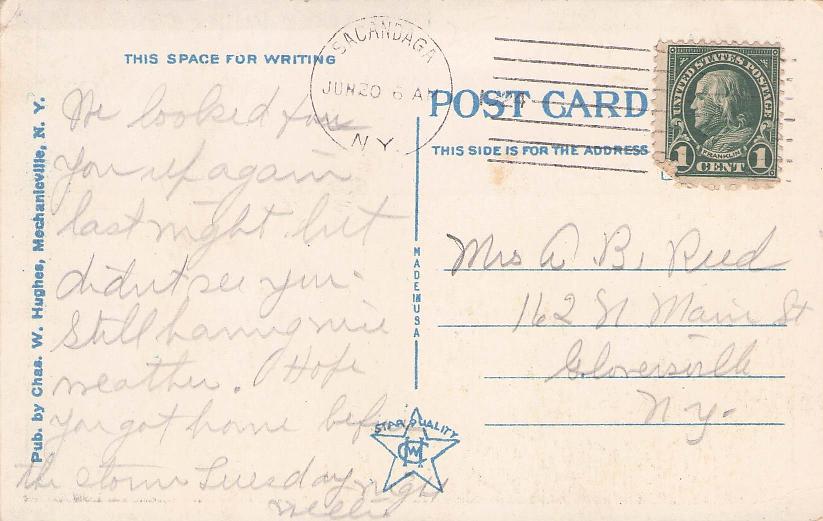 THIS SPACE FOR WRITING
We looked for
you up again
last night but
didn't see you.
Still having nice
weather. Hope
you got home before
the storm Tuesday night
Pub. by Chas. W. Hughes, Mechanicville, N. Y.
SACANDAGA
JUN 20 6 AM
N.Y.
POST CARD
THIS SIDE IS FOR THE ADDRESS
UNITED STATES POSTAGE
FRANKLIN
1 CENT 1
MADE IN USA
Mrs A. B. Reed
162 N Main St
Gloversville
N.Y.
STAR QUALITY